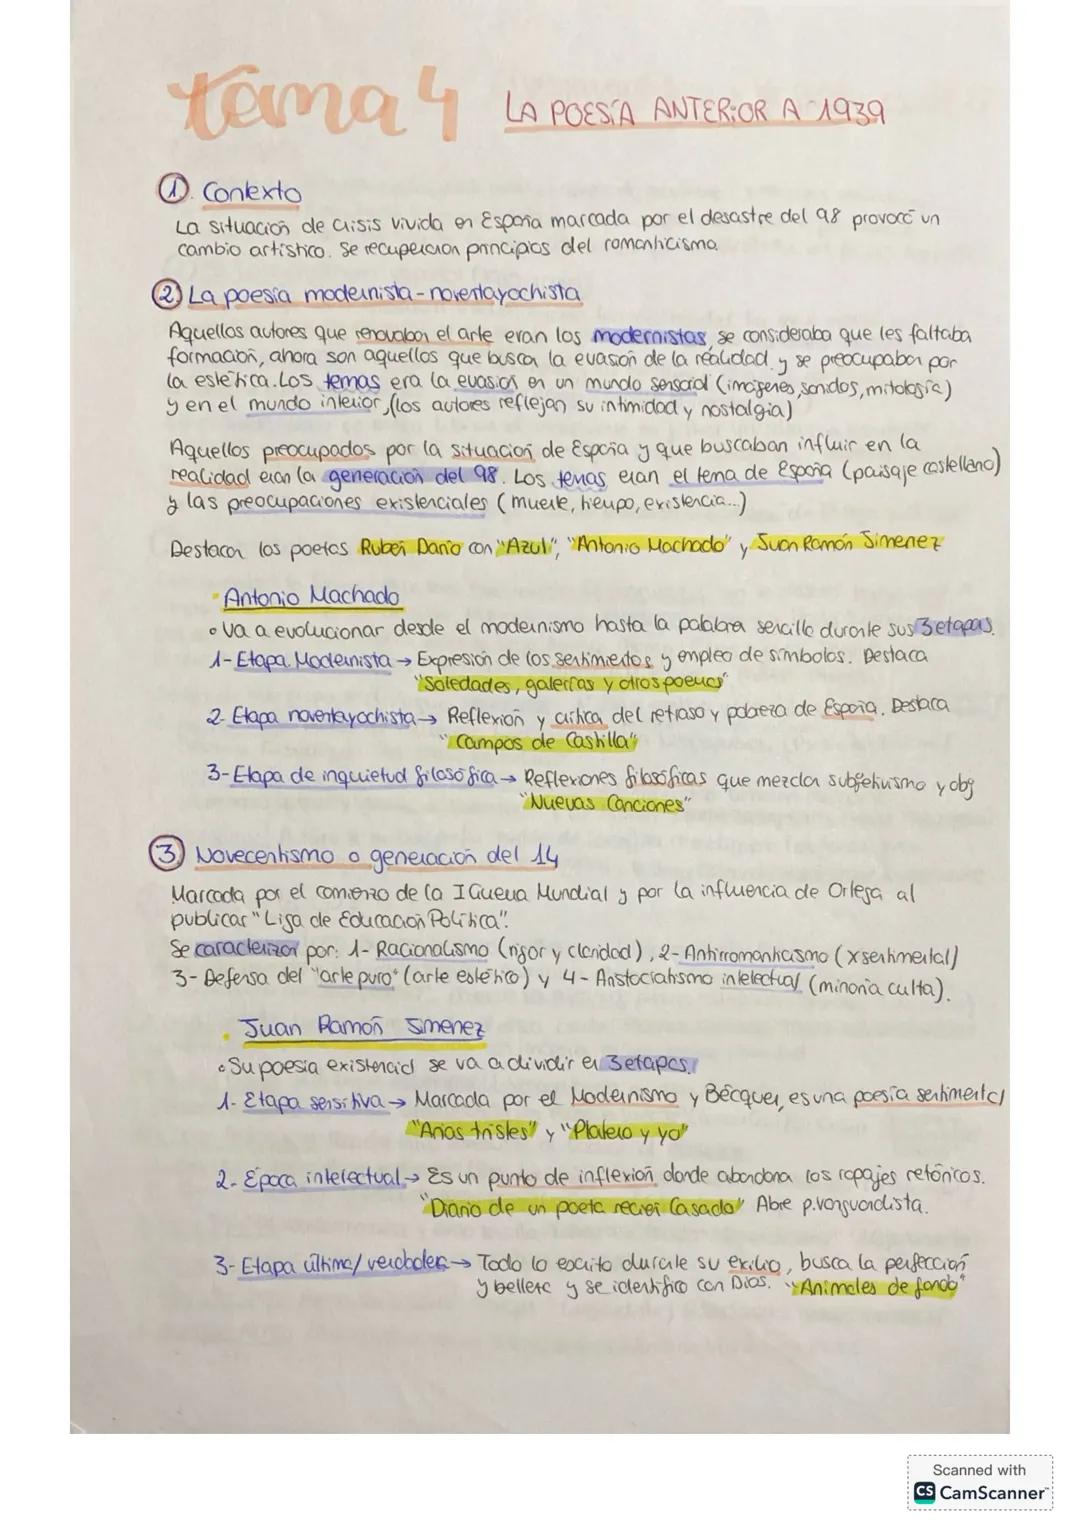 tema 4 LA POESÍA ANTERIOR A 1939
① Contexto
La situación de crisis vivida en España marcada por el desastre del 98 provocó un
cambio artístico. Se recuperaron principios del romanticismo.
② La poesía modernista-noventayochista
Aquellos autores que renovaban el arte eran los modernistas, se consideraba que les faltaba
formación, ahora son aquellos que busca la evasión de la realidad y se preocupaban por
la estética. Los temas era la evasión en un mundo sensorial (imágenes, sonidos, mitología)
y en el mundo interior, (los autores reflejan su intimidad y nostalgia)
Aquellos preocupados por la situación de España y que buscaban influir en la
realidad eran la generación del 98. Los temas eran el tema de España (paisaje castellano)
y las preocupaciones existenciales (muerte, tiempo, existencia...)
Destacan los poetas Rubén Darío con "Azul", "Antonio Machado" y Juan Ramón Jimenez
Antonio Machado
• Va a evolucionar desde el modernismo hasta la palabra sencilla durante sus 3 etapas.
1- Etapa Modernista → Expresión de los sentimientos y empleo de símbolos. Destaca
"Soledades, galerías y otros poemas"
2- Etapa noventayochista → Reflexión y crítica del retraso y pobreza de España. Destaca
"Campos de Castilla"
3- Etapa de inquietud filosófica → Reflexiones filosóficas que mezcla subjetivismo y obj
"Nuevas Canciones"
③ Novecentismo o generación del 14
Marcada por el comienzo de la I Guerra Mundial y por la influencia de Ortega al
publicar "Liga de Educación Política".
Se caracterizan por: 1- Racionalismo (rigor y claridad), 2- Antirromanticismo (x sentimental)
3- Defensa del "arte puro" (arte estético) y 4- Aristocratismo intelectual (minoría culta).
Juan Ramón Jimenez
• Su poesía existencial se va a dividir en 3 etapas.
1- Etapa sensitiva → Marcada por el Modernismo y Bécquer, es una poesía sentimental
"Arias tristes" y "Platero y yo"
2- Época intelectual → Es un punto de inflexión donde abandona los ropajes retóricos.
"Diario de un poeta recién casado" Abre p.vanguardista.
3- Etapa última/ verdadera → Todo lo escrito durante su exilio, busca la perfección
y belleza y se identifica con Dios. "Animales de fondo"
Scanned with
CS CamScanner